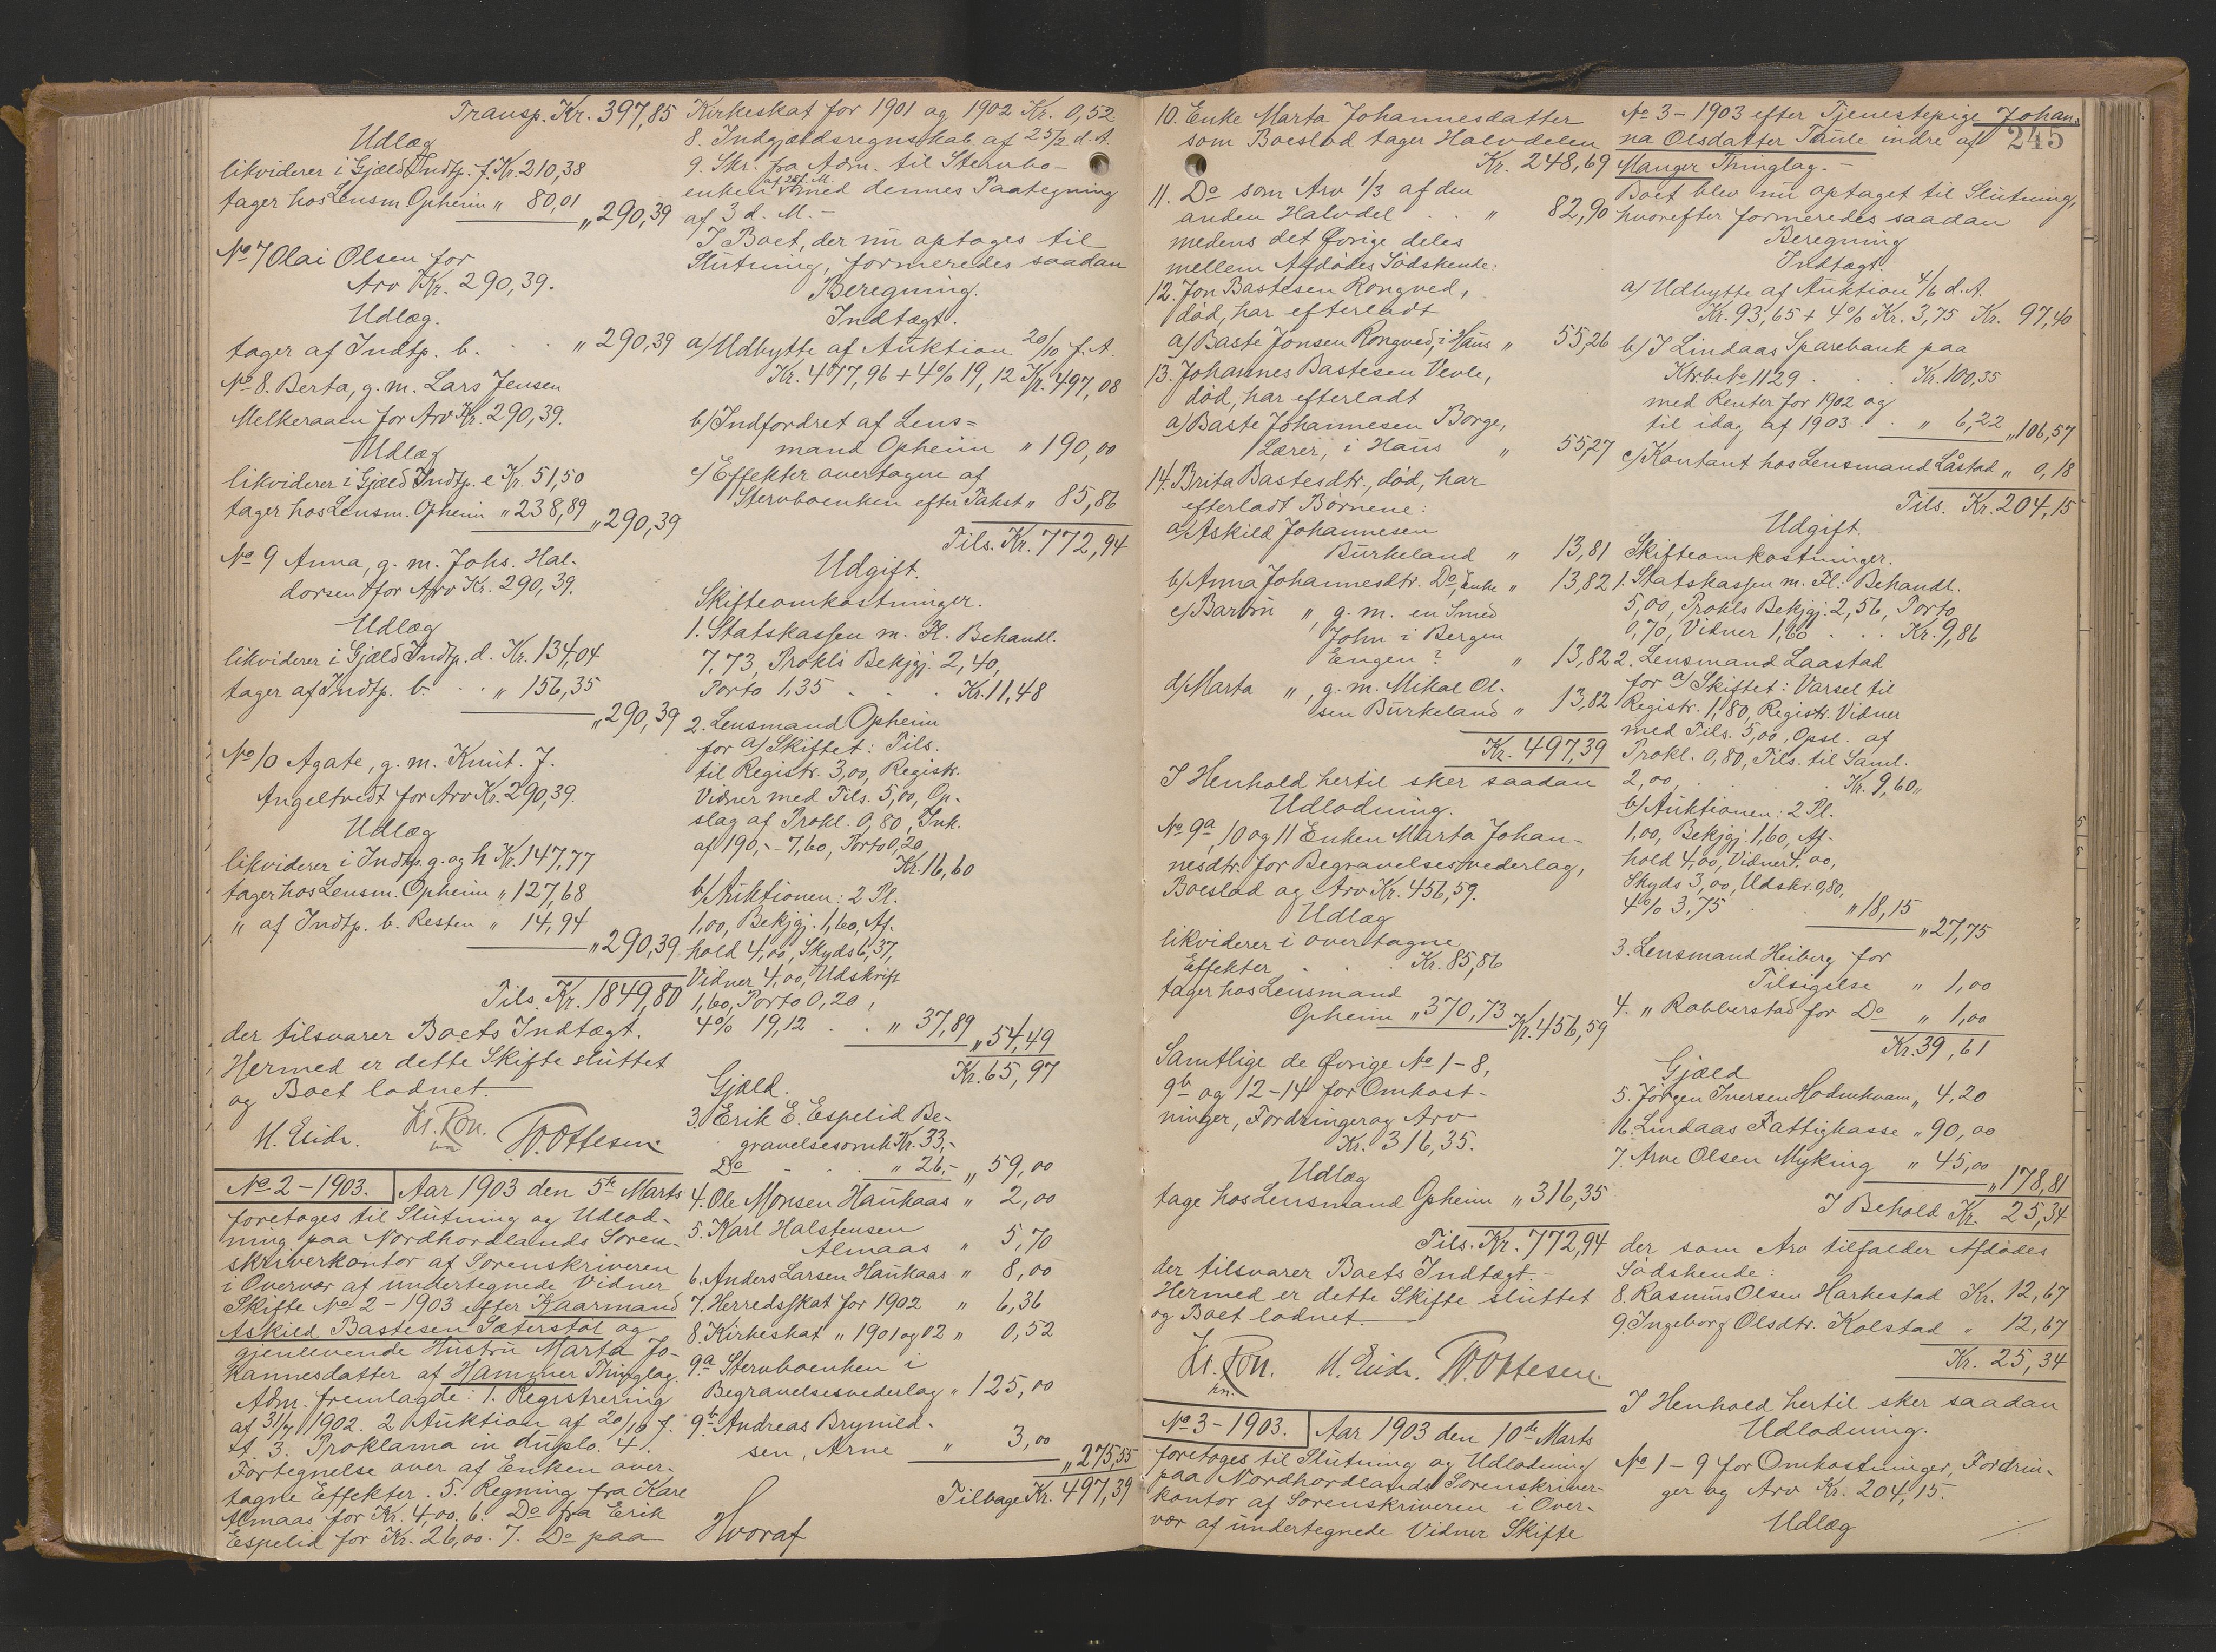 Transp. Kr. 397,85
Udlæg
likviderer i Gjæld Indtp. f. Kr. 210,38
tager hos Lensm. Opheim " 80,01
" 290,39
No 7 Olai Olsen for
Arv Kr. 290,39.
Udlæg.
tager af Indtp. b. . . " 290,39
No 8. Berta, g. m. Lars Jensen
Melkeraaen for Arv Kr. 290,39.
Udlæg
likviderer i Gjæld Indtp. e Kr. 51,50
tager hos Lensm. Opheim " 238,89
" 290,39
No 9 Anna, g. m. Johs. Hal-
dorsen for Arv Kr. 290,39.
Udlæg
likviderer i Gjæld Indtp. d. Kr. 134,04
tager af Indtp. b. . . " 156,35
" 290,39
No 10 Agate, g. m. Knut. J.
Angeltvedt for Arv Kr. 290,39.
Udlæg
likviderer i Indtp. g. og h Kr. 147,77
tager hos Lensm. Opheim " 127,68
" af Indtp. b. Resten " 14,94
" 290,39
Tils. Kr. 1849,80
der tilsvarer Boets Indtægt.
Hermed er dette Skifte sluttet
og Boet lodnet.
M. Eide. Kr. Ron. W. Ottesen.
No 2 - 1903. Aar 1903 den 5te Marts
foretoges til Slutning og Udlod-
ning paa Nordhordlands Soren-
skriverkontor af Sorenskriveren
i Overvær af undertegnede Vidner
Skifte No 2 - 1903 efter Kaarmand
Askild Bastesen Sæterstøl og
gjenlevende Hustru Marta Jo-
hannesdatter af Hammer Thinglag.
Adm. fremlagde: 1. Registrering
af 31/7 1902. 2 Auktion af 20/10 f.
A. 3. Proklama in duplo. 4.
Fortegnelse over af Enken over-
tagne Effekter. 5. Regning fra Karl
Almaas for Kr. 4,00. 6. Do fra Erik
Espelid for Kr. 26,00. 7. Do paa
Kirkeskat for 1901 og 1902 Kr. 0,52
8. Indgjældsregnskab af 25/2 d. A.
9. Skr. fra Adm. til Stervbo-
af 28 f. M.
enken med dennes Paategning
af 3 d. M. -
I Boet, der nu optoges til
Slutning, formeredes saadan
Beregning.
Indtægt.
a) Udbytte af Auktion 20/10 f. A.
Kr. 477,96 + 4% 19,12 Kr. 497,08
b) Indfordret af Lens=
mand Opheim " 190,00
c) Effekter overtagne af
Stervboenken efter Takst " 85,86
Tils. Kr. 772,94
Udgift.
Skifteomkostninger.
1. Statskassen m. Fl. Behandl.
7,73, Prokls Bekjgj. 2,40,
Porto 1,35 . . . Kr. 11,48
2. Lensmand Opheim
for a) Skiftet: Tils.
til Registr. 3,00, Registr.
Vidner med Tils. 5,00, Op-
slag af Prokl. 0,80, Ink.
af 190,- - 7,60, Porto 0,20
Kr. 16,60
b) Auktionen: 2 Pl.
1,00, Bekjgj. 1,60, Af-
hold 4,00, Skyds 6,37,
Vidner 4,00, Udskrift
1,60, Porto 0,20,
4% 19,12 . . " 37,89
" 54,49
Kr. 65,97
Gjæld.
3. Erik E. Espelid Be-
gravelsesomk Kr. 33,-
Do - . . " 26,- " 59,00
4. Ole Monsen Haukaas " 2,00
5. Karl Halstensen
Almaas " 5,70
6. Anders Larsen Haukaas " 8,00
7. Herredsskat for 1902 " 6,36
8. Kirkeskat " 1901 og 02 " 0,52
9a Stervboenken i
Begravelsesvederlag " 125,00
9b Andreas Brynild-
sen, Arne " 3,00
" 275,55
Tilbage Kr. 497,39
Hvoraf
10. Enke Marta Johannesdatter
som Boeslod tager Halvdelen
Kr. 248,69
11. Do som Arv 1/3 af den
anden Halvdel . . " 82,90
medens det Øvrige deles
mellem Afdødes Södskende:
12. Jon Bastesen Rongved,
død, har efterladt
a) Baste Jonsen Rongved, i Haus " 55,26
13. Johannes Bastesen Vevle,
død, har efterladt
a) Baste Johannesen Borge,
Lærer, i Haus " 55,27
14. Brita Bastesdtr., død, har
efterladt Børnene:
a) Askild Johannesen
Burkeland " 13,81
b) Anna Johannesdtr. Do, Enke " 13,82
c) Barbru " , g. m. en Smed
John i Bergen
Engen? " 13,82
d) Marta " , g. m. Mikal Ol-
sen Burkeland " 13,82
Kr. 497,39
I Henhold hertil sker saadan
Udlodning.
No 9a, 10 og 11 Enken Marta Johan-
nesdtr. for Begravelsesvederlag,
Boeslod og Arv Kr. 456,59.
Udlæg
likviderer i overtagne
Effekter . . . Kr. 85,86
tager hos Lensmand
Opheim " 370,73
Kr. 456,59
Samtlige de Øvrige No 1-8,
9b og 12-14 for Omkost-
ninger, Fordringer og Arv
Kr. 316,35.
Udlæg
tage hos Lensmand Opheim " 316,35
Tils. Kr. 772,94
der tilsvarer Boets Indtægt. -
Hermed er dette Skifte sluttet
og Boet lodnet.
Kr. Ron. M. Eide. W. Ottesen.
No 3 - 1903. Aar 1903 den 10de Marts
foretoges til Slutning og Udlodning
paa Nordhordlands Sorenskriver-
kontor af Sorenskriveren i Over-
vær af undertegnede Vidner Skifte
No 3 - 1903 efter Tjenestepige Johan-
na Olsdatter Taule indre af
245
Manger Thinglag. -
Boet blev nu optaget til Slutning,
hvorefter formeredes saadan
Beregning
Indtægt.
a) Udbytte af Auktion 4/6 d. A.
Kr. 93,65 + 4% Kr. 3,75 Kr. 97,40
b) I Lindaas Sparebank paa
Ktrbe No 1129 . . . Kr. 100,35
med Renter for 1902 og
til idag af 1903 . . " 6,22
" 106,57
c) Kontant hos Lensmand Låstad " 0,18
Tils. Kr. 204,15
Udgift.
Skifteomkostninger.
1. Statskassen m. Fl.: Behandl.
5,00, Prokls Bekjgj. 2,56, Porto
0,70, Vidner 1,60 . . . Kr. 9,86
2. Lensmand Laastad
for a) Skiftet: Varsel til
Registr. 1,80, Registr. Vidner
med Tils. 5,00, Opsl. af
Prokl. 0,80, Tils. til Saml.
2,00 . . . Kr. 9,60
b) Auktionen: 2 Pl.
1,00, Bekjgj. 1,60, Af-
hold 4,00, Vidner 4,00,
Skyds 3,00, Udskr. 0,80,
4% 3,75 . . " 18,15
" 27,75
3. Lensmand Heiberg for
Tilsigelse " 1,00
4. " Rabberstad for Do " 1,00
Kr. 39,61
Gjæld
5. Jörgen Iversen Hodnekvam " 4,20
6. Lindaas Fattigkasse " 90,00
7. Arne Olsen Myking " 45,00
" 178,81
I Behold Kr. 25,34
der som Arv tilfalder Afdödes
Södskende:
8. Rasmus Olsen Harkestad Kr. 12,67
9. Ingeborg Olsdtr. Kolstad " 12,67
Kr. 25,34
I Henhold hertil sker saadan
Udlodning.
No 1-9 for Omkostninger, Fordrin-
ger og Arv Kr. 204,15.
Udlæg